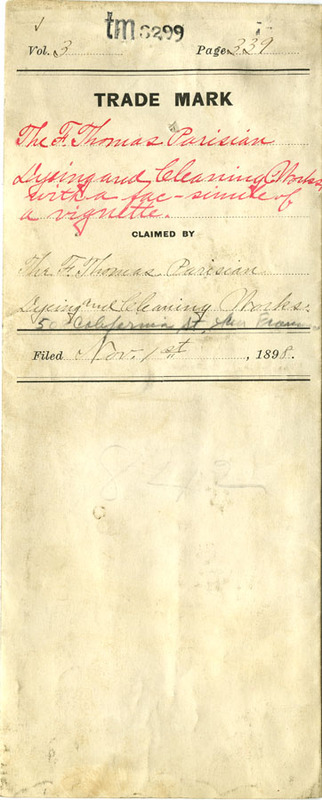 tm 3299
Vol. 3 Page 339
TRADE MARK
The F. Thomas Parisian
Dyeing and Cleaning Works,
with a fac-simile of
a vignette.
CLAIMED BY
The F. Thomas Parisian
Dyeing and Cleaning Works.
California St, San
Filed Nov. 1st, 1898.